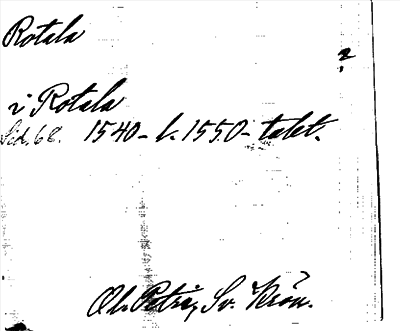 Rotala
?
i Rotala
Sid. 68. 1540- l. 1550-talet.
Ol. Petri, Sv. Krön.